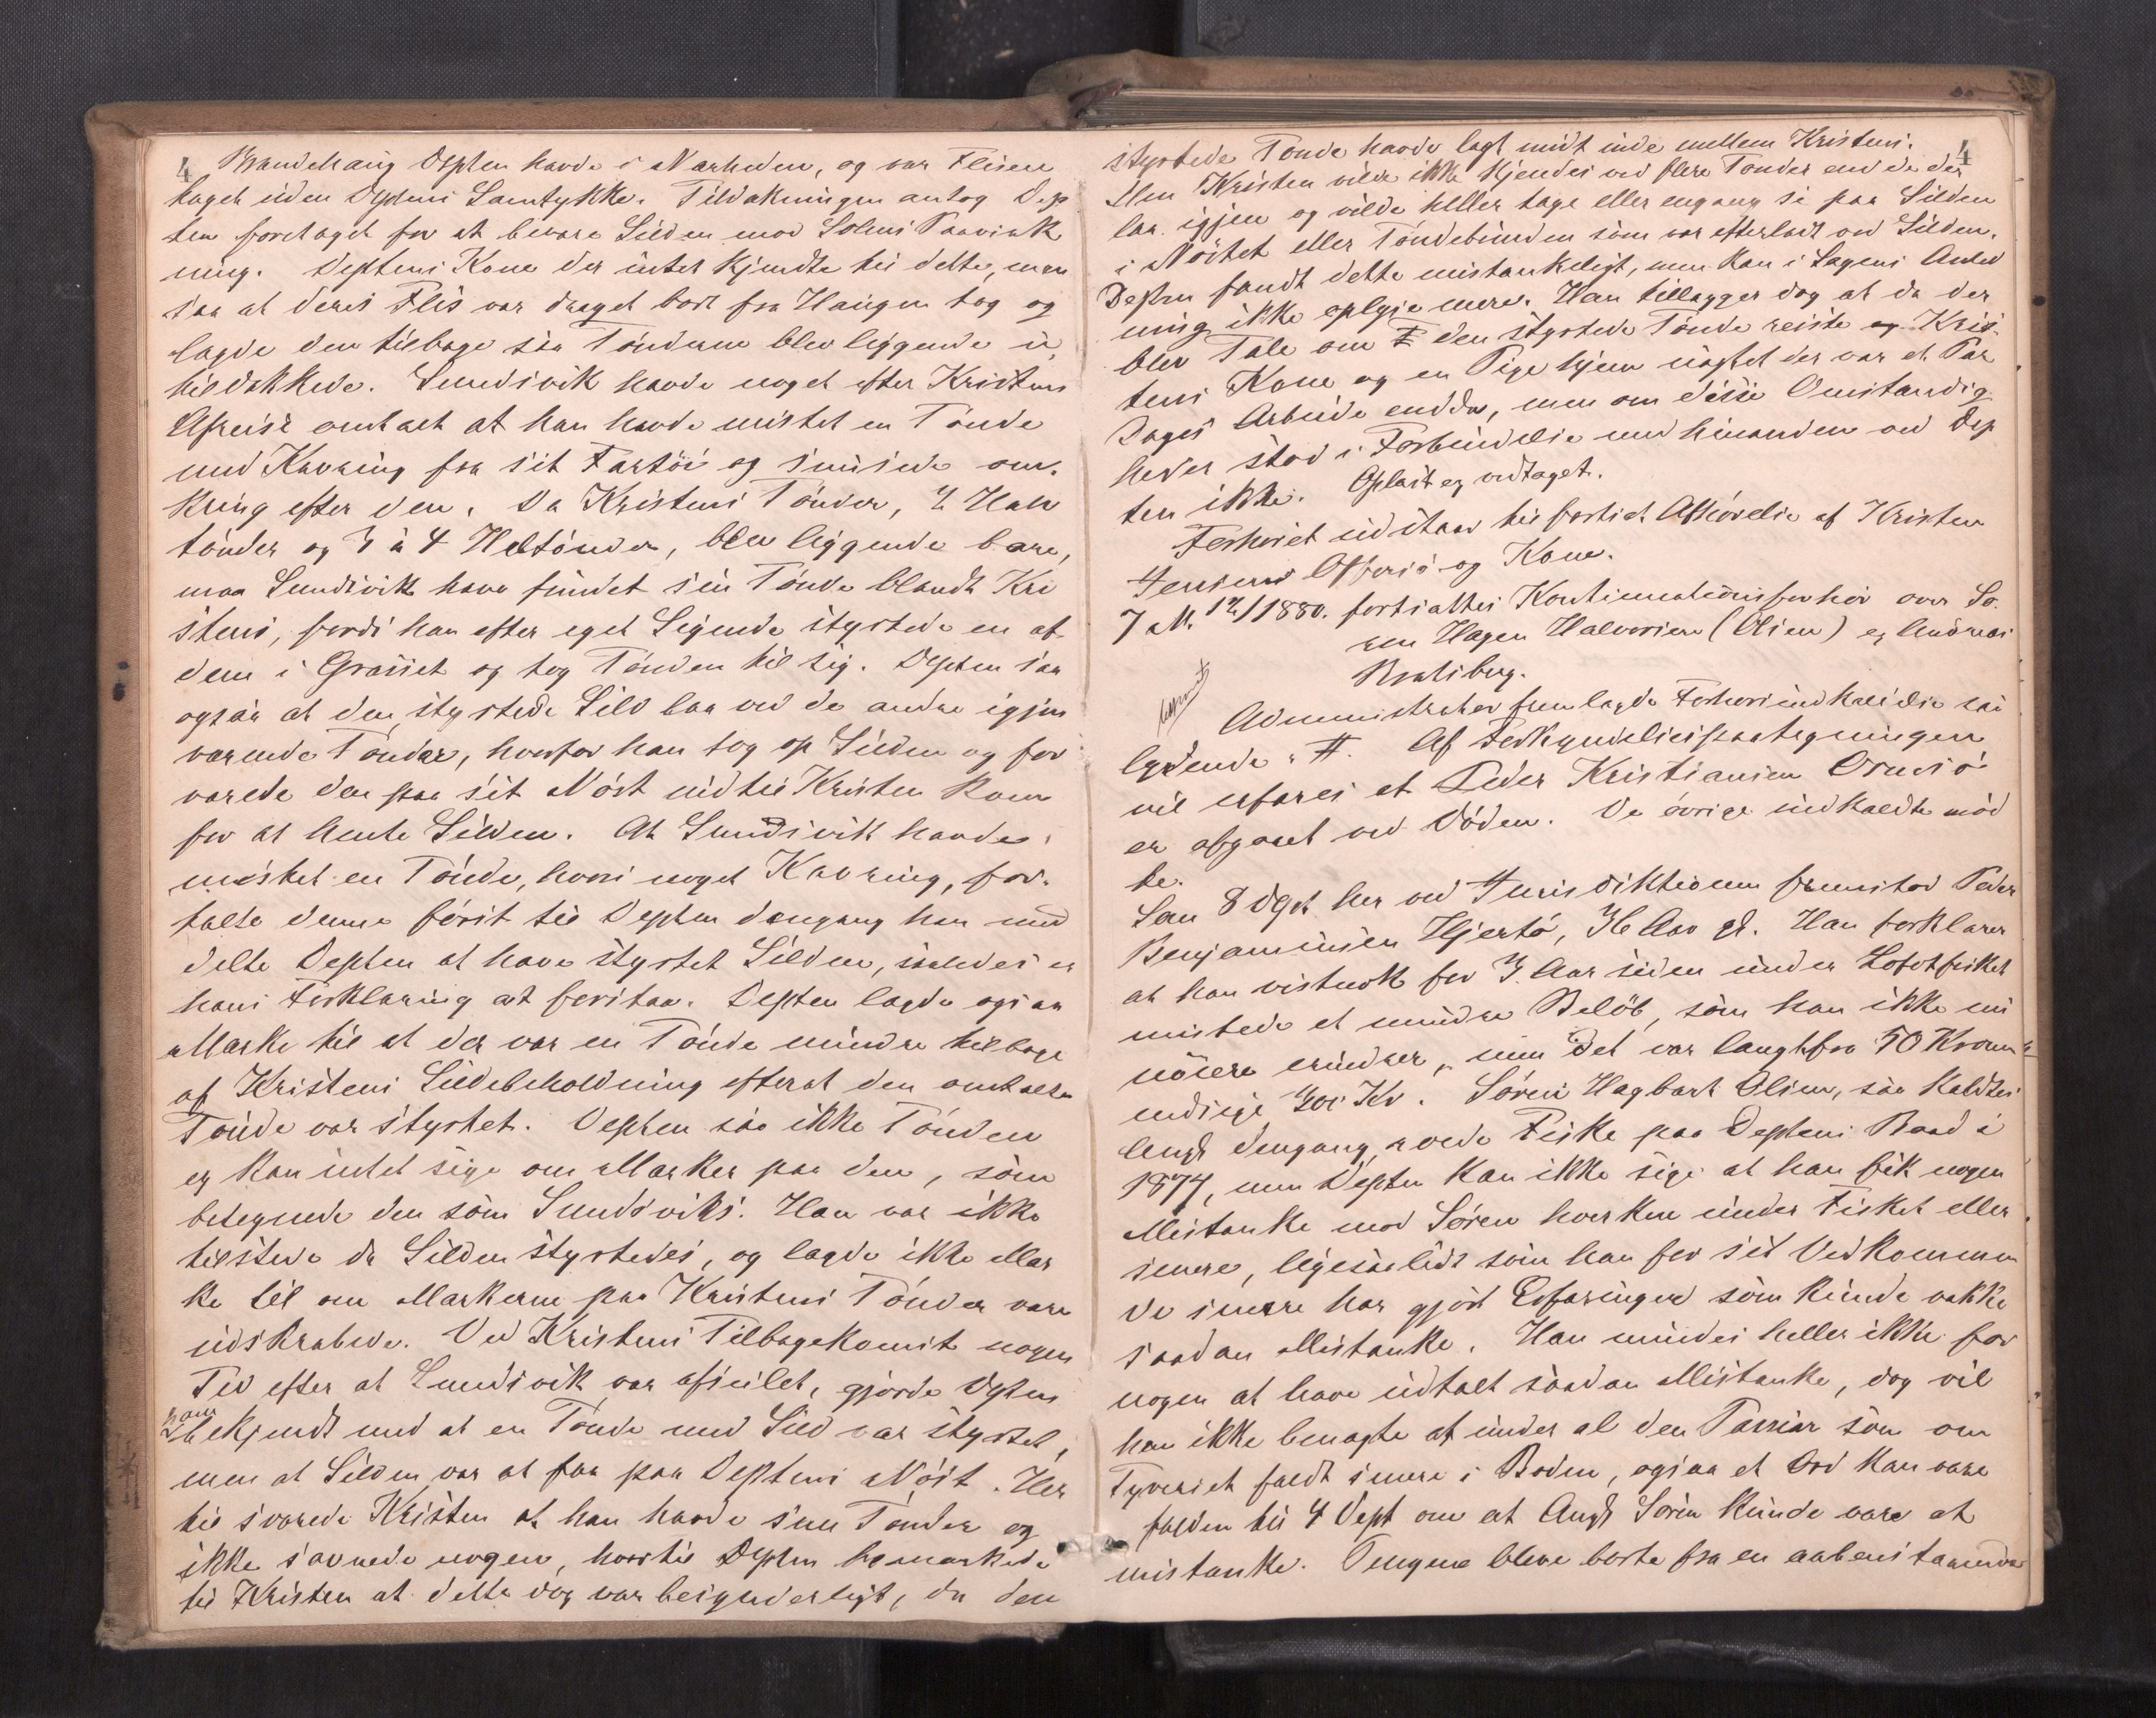 4
Brændehaug Depten havde i Nærheden, og var Flisen
taget uden Deptens Samtykke. Tildækningen antog Dep
ten foretaget for at bevare Silden mod Solens Paavirk
ning. Deptens Kone der intet kjendte til dette, men
saa at deres Flis var draget bort fra Haugen tog og
lagde den tilbage saa Tönderne blev liggende u
tildækkede. Sundsvik havde noget efter Kristens
Afreise omtalt at han havde mistet en Tönde
med Kavring fra sit Fartöi og snusede om-
kring efter den. Da Kristens Tönder, 2 Halv
tönder og 3 à 4 Heltönder, blev liggende bare,
maa Sundsvik have fundet sin Tönde blandt Kri
stens, fordi han efter eget Sigende styrtede en af
dem i Græsset og tog Tönden til sig. Depten saa
ogsaa at den styrtede Sild laa ved de andre igjen
værende Tönder, hvorfor han tog op Silden og for
varede den paa sit Nöst indtil Kristen kom
for at hente Silden. At Sundsvik havde
mistet en Tönde, hvori noget Kavring, for-
talte denne först til Depten dengang han med
delte Depten at have styrtet Silden, saaledes er
hans Forklaring at forstaa. Depten lagde ogsaa
Mærke til at der var en Tönde mindre tilbage
af Kristens Sildebeholdning efterat den omtalte
Tönde var styrtet. Depten saa ikke Tönden
og kan intet sige om Mærker paa den, som
betegnede den som Sundsviks. Han var ikke
tilstede da Silden styrtedes, og lagde ikke Mær
ke til om Mærkerne paa Kristens Tönder vare
udskrabede. Ved Kristens Tilbagekomst nogen
Tid efter at Sundsvik var afseilet, gjorde Depten
ham
bekjendt med at en Tönde med Sild var styrtet,
men at Silden var at faa paa Deptens Nöst. Her
til svarede Kristen at han havde sine Tönder og
ikke savnede nogen, hvortil Depten bemærkede
til Kristen at dette dog var besynderligt, da den
4
styrtede Tönde havde lagt midt inde mellem Kristens.
Men Kristen vilde ikke kjendes ved flere Tönder end de der
laa igjen og vilde heller tage eller engang se paa Silden
i Nöstet eller Töndebunden som var efterladt ved Silden.
Depten fandt dette mistænkeligt, men kan i Sagens Anled
ning ikke oplyse mere. Han tillægger dog at da der
blev Tale om den styrtede Tönde reiste Kris
tens Kone og en Pige hjem uagtet der var et Par
Dages Arbeide endda, men om disse Omstændig
heder stod i Forbindelse med hinanden ved Dep
ten ikke. Oplæst og vedtaget.
Forhöret udstaar til fortsat Afhörelse af Kristen
Jensens Offersö og Kone.
7 M. 12/1 1880. fortsattes Kontinuationsforhör over Sö-
ren Hagen Halvorsen (Olsen) og Andreas
Bratsberg.
Administrator fremlagde Forhörsindkaldelse saa
lydende: #. Af Forkyndelsespaategningen
vil erfares at Peder Kristiansen Ornesö
er afgaaet ved Döden. De övrige indkaldte möd
te.
Som 8 Dept her ved Jurisdiktionen fremstod Peder
Benjaminsen Hjertö, 36 Aar gl. Han forklarer
at han vistnok for 3 Aar siden under Lofotfisket
mistede et mindre Belöb, som han ikke nu
nöiere erindrer, men det var langtfra 50 Kroner
endsige 200 Kr. Sören Hagbart Olsen, saa kaldtes
Angt dengang, roede Fiske paa Deptens Baad i
1874, men Depten kan ikke sige at han fik nogen
Mistanke mod Sören hverken under Fisket eller
senere, ligesaalidt som han for sit Vedkommen
de senere har gjort Erfaringer som kunde vække
saadan Mistanke. Han mindes heller ikke for
nogen at have udtalt saadan Mistanke, dog vil
han ikke benægte at under al den Passiar som om
Tyveriet faldt senere i Boden, ogsaa et Ord kan være
falden til 4 Dept om at Angt Sören kunde være at
mistænke. Pengene bleve borte fra en aabenstaaende